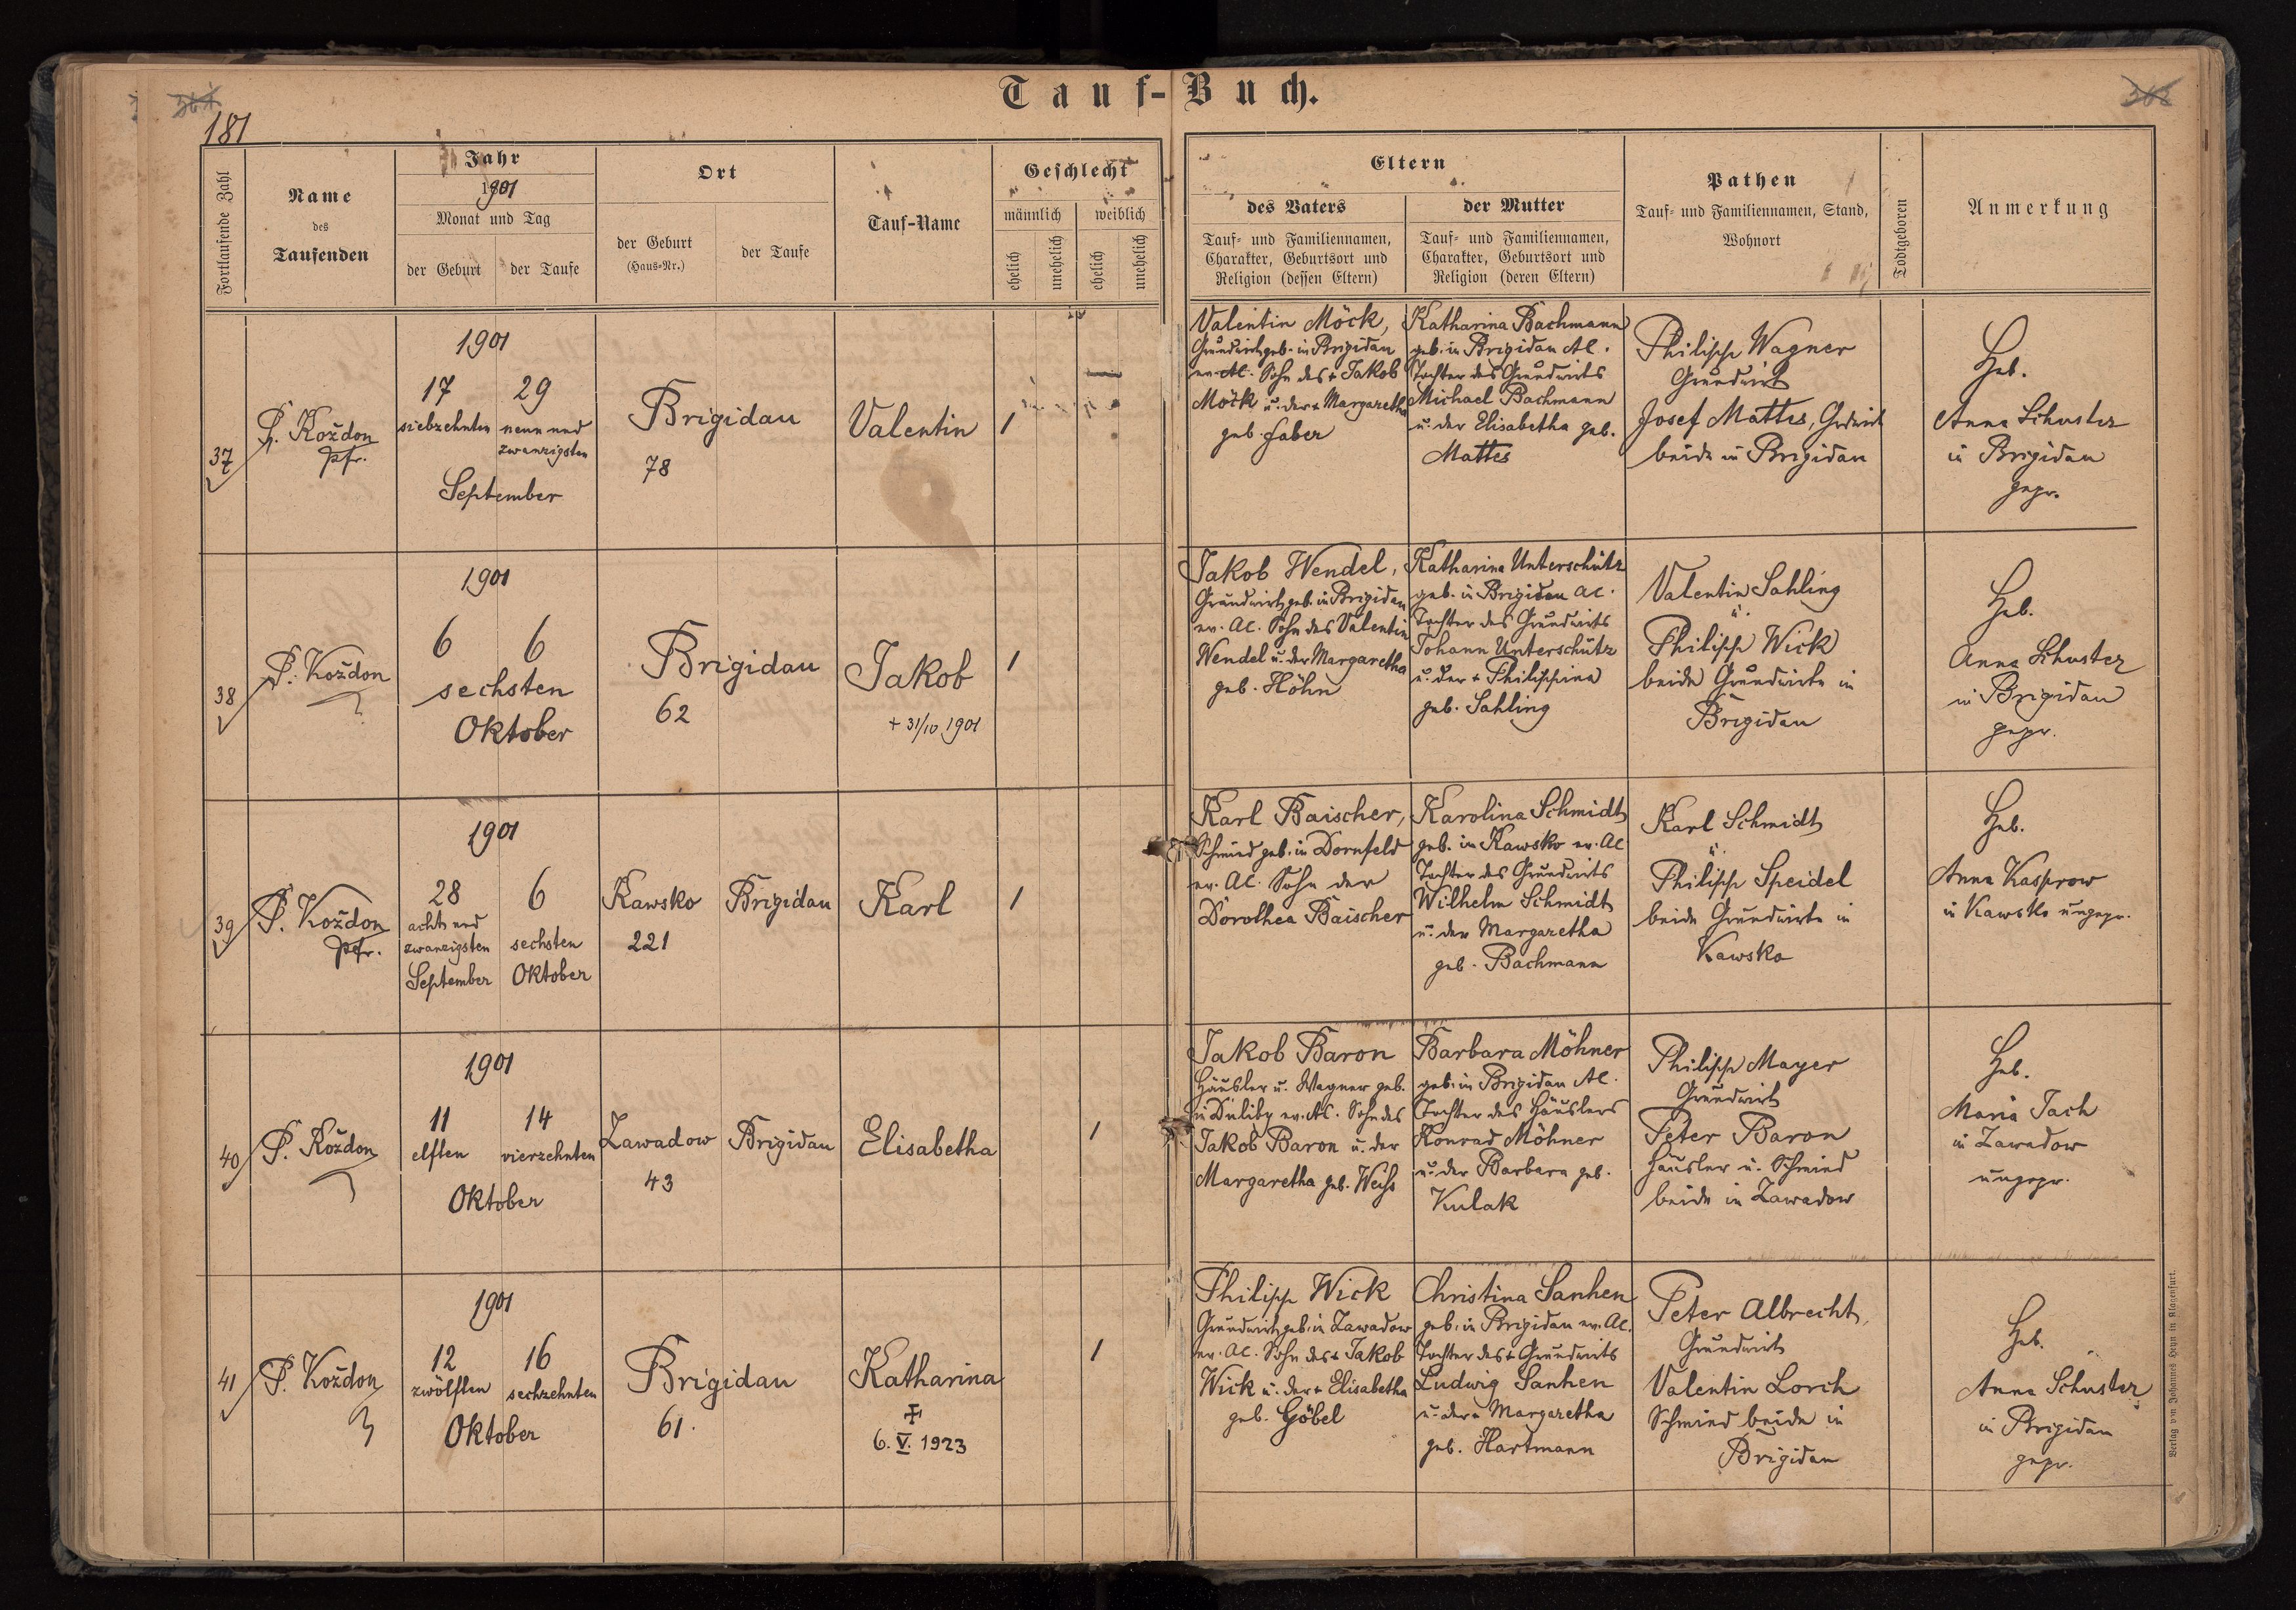 Tauf-Buch.
181
Fortlaufende Zahl
Name
des
Taufenden
Jahr
1901
Monat und Tag
der Geburt
der Taufe
Ort
der Geburt
(Haus-Nr.)
der Taufe
Tauf-Name
Geschlecht
männlich
weiblich
ehelich
unehelich
ehelich
unehelich
Eltern
des Vaters
Tauf- und Familiennamen,
Charakter, Geburtsort und
Religion (dessen Eltern)
der Mutter
Tauf- und Familiennamen,
Charakter, Geburtsort und
Religion (deren Eltern)
Pathen
Tauf- und Familiennamen, Stand,
Wohnort
Todtgeboren
Anmerkung
37
P. Koždon
Pfr.
1901
17 29
siebzehnten neun und
zwanzigsten
September
Brigidau
78
Valentin
1
Valentin Möck,
Grundwirt geb. in Brigidau
ev. AC. Sohn des + Jakob
Möck u. der + Margaretha
geb. Faber
Katharina Bachmann
geb. in Brigidau AC.
Tochter des Grundwirts
Michael Bachmann
u. der Elisabetha geb.
Mattes
Philipp Wagner
Grundwirt
Josef Mattes, Grdwirt
beide in Brigidau
Heb.
Anna Schuster
in Brigidau
gepr.
38
P. Koždon
1901
6 6
sechsten
Oktober
Brigidau
62
Jakob
+ 31/10 1901
1
Jakob Wendel,
Grundwirt geb. in Brigidau
ev. AC. Sohn des Valentin
Wendel u. der Margaretha
geb. Höhn
Katharina Unterschütz
geb. in Brigidau AC.
Tochter des Grundwirts
Johann Unterschütz
u. der + Philippina
geb. Sahling
Valentin Sahling
u.
Philipp Wick
beide Grundwirte in
Brigidau
Heb.
Anna Schuster
in Brigidau
gepr.
39
P. Koždon
Pfr.
1901
28 6
acht und
zwanzigsten sechsten
September Oktober
Kawsko Brigidau
221
Karl
1
Karl Baischer,
Schmied geb. in Dornfeld
ev. AC. Sohn der
Dorothea Baischer
Karolina Schmidt
geb. in Kawsko ev. AC
Tochter des Grundwirts
Wilhelm Schmidt
u. der Margaretha
geb. Bachmann
Karl Schmidt
u.
Philipp Speidel
beide Grundwirte in
Kawsko
Heb.
Anna Kasprow
in Kawsko ungepr.
40
P. Koždon
1901
11 14
elften vierzehnten
Oktober
Zawadow Brigidau
43
Elisabetha
1
Jakob Baron
Häusler u. Wagner geb.
in Duliby ev. AC. Sohn des
Jakob Baron u. der
Margaretha geb.
Barbara Möhner
geb. in Brigidau AC.
Tochter des Häuslers
Konrad Möhner
u. der Barbara geb.
Kulak
Philipp Mayer
Grundwirt
Peter Baron
Häusler u. Schmied
beide in Zawadow
Heb.
Maria Tach
in Zawadow
ungepr.
41
P. Koždon
1901
12 16
zwölften sechzehnten
Oktober
Brigidau
61.
Katharina
‡
6. V. 1923
1
Philipp Wick
Grundwirt geb. in Zawadow
ev. AC. Sohn des + Jakob
Wick u. der + Elisabetha
geb. Göbel
Christina Sanhen
geb. in Brigidau ev. AC.
Tochter des + Grundwirts
Ludwig Sanhen
u. der + Margaretha
geb. Hartmann
Peter Albrecht,
Grundwirt
Valentin Lorch
Schmied beide in
Brigidau
Heb.
Anna Schuster
in Brigidau
gepr.
Verlag von Johannes Heyn in Klagenfurt.